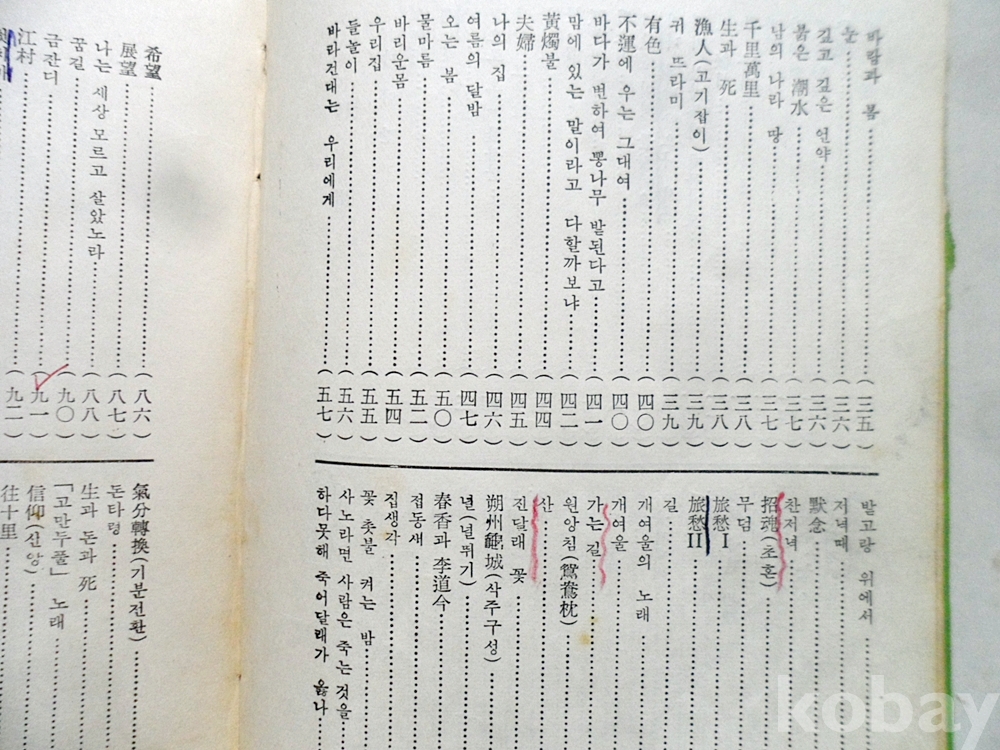 바람과 봄 (三五)
눈 (三六)
깊고 깊은 언약 (三六)
붉은 潮水 (三七)
남의 나라 땅 (三七)
千里萬里 (三八)
生과 死 (三八)
漁人(고기잡이) (三九)
귀뚜라미 (三九)
有色 (四〇)
不運에 우는 그대여 (四〇)
바다가 변하여 뽕나무 밭된다고 (四一)
맘에 있는 말이라고 다할까보냐 (四二)
黃燭불 (四四)
夫婦 (四五)
나의 집 (四六)
여름의 달밤 (四七)
오는 봄 (五〇)
물마름 (五二)
바리운몸 (五四)
우리집 (五五)
들놀이 (五六)
바라건대는 우리에게 (五七)
밭고랑 위에서
저녁때
默念
찬저녁
招魂(초혼)
무덤
旅愁Ⅰ
旅愁Ⅱ
길
개여울의 노래
개여울
가는길
원앙침(鴛鴦枕)
산
진달래 꽃
朔州龜城(삭주구성)
널(널뛰기)
春香과 李道令
접동새
집생각
꽃 촛불 켜는 밤
사노라면 사람은 죽는 것을
하다못해 죽어달래가 옳나
希望 (八六)
展望 (八七)
나는 세상 모르고 살았노라 (八八)
꿈길 (九〇)
금잔디 (九一)
江村 (九二)
氣分轉換(기분전환)
돈타령
生과 돈과 死
「고만두풀」 노래
信仰(신앙)
往十里
kobay